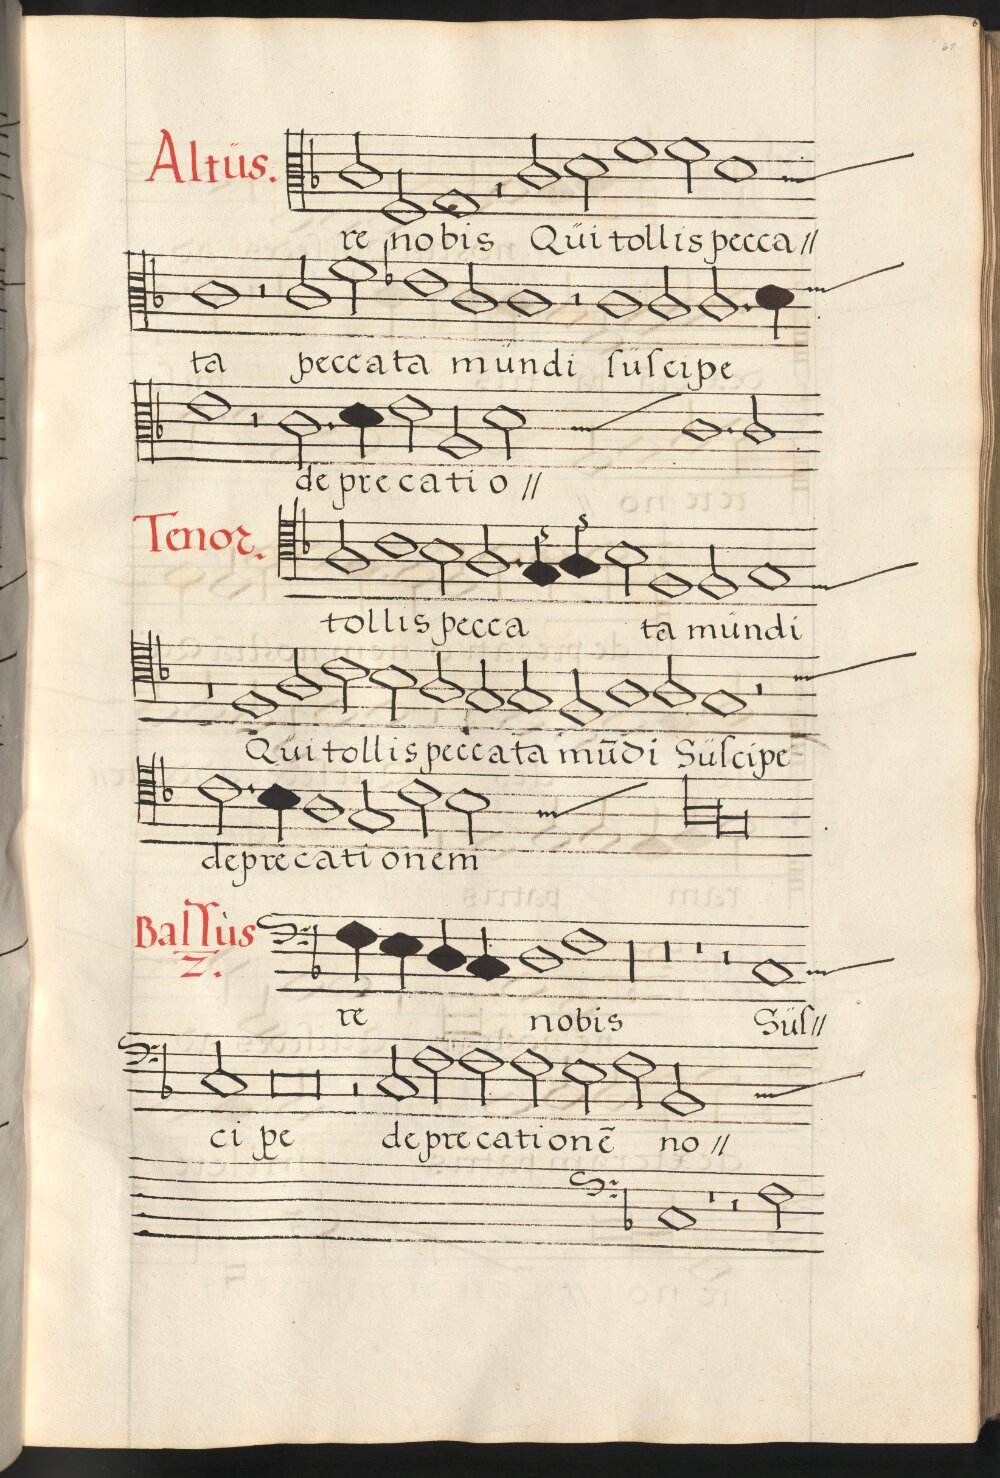 67
Altüs.
re nobis Qüi tollis pecca //
ta peccata mündi süscipe
deprecatio //
Tenor.
tollis pecca ta mündi
Qüi tollis peccata mūdi Süscipe
deprecationem
Bassüs
2.
re nobis Süs //
cipe deprecationē no //